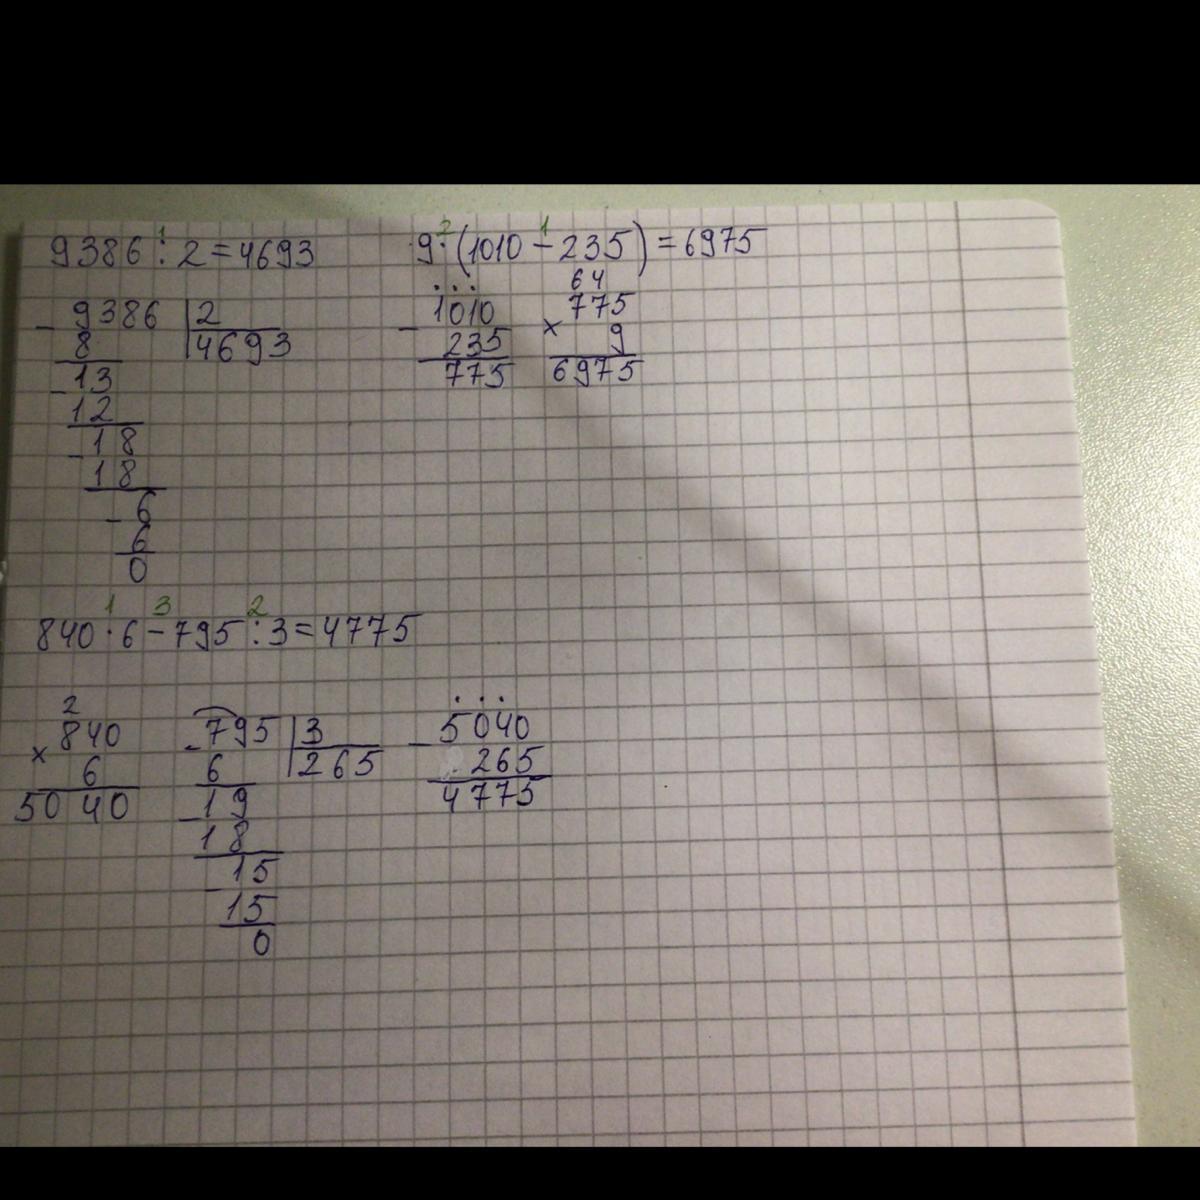 1
9386 : 2 = 4693
- 9386 | 2
8 | 4693
- 13
12
- 18
18
- 6
6
0
2 1
9 · (1010 - 235) = 6975
. . .
- 1010
235
775
64
775
× 9
6975
1 3 2
840 · 6 - 795 : 3 = 4775
2
840
× 6
5040
- 795 | 3
6 | 265
- 19
18
- 15
15
0
. . .
- 5040
265
4775